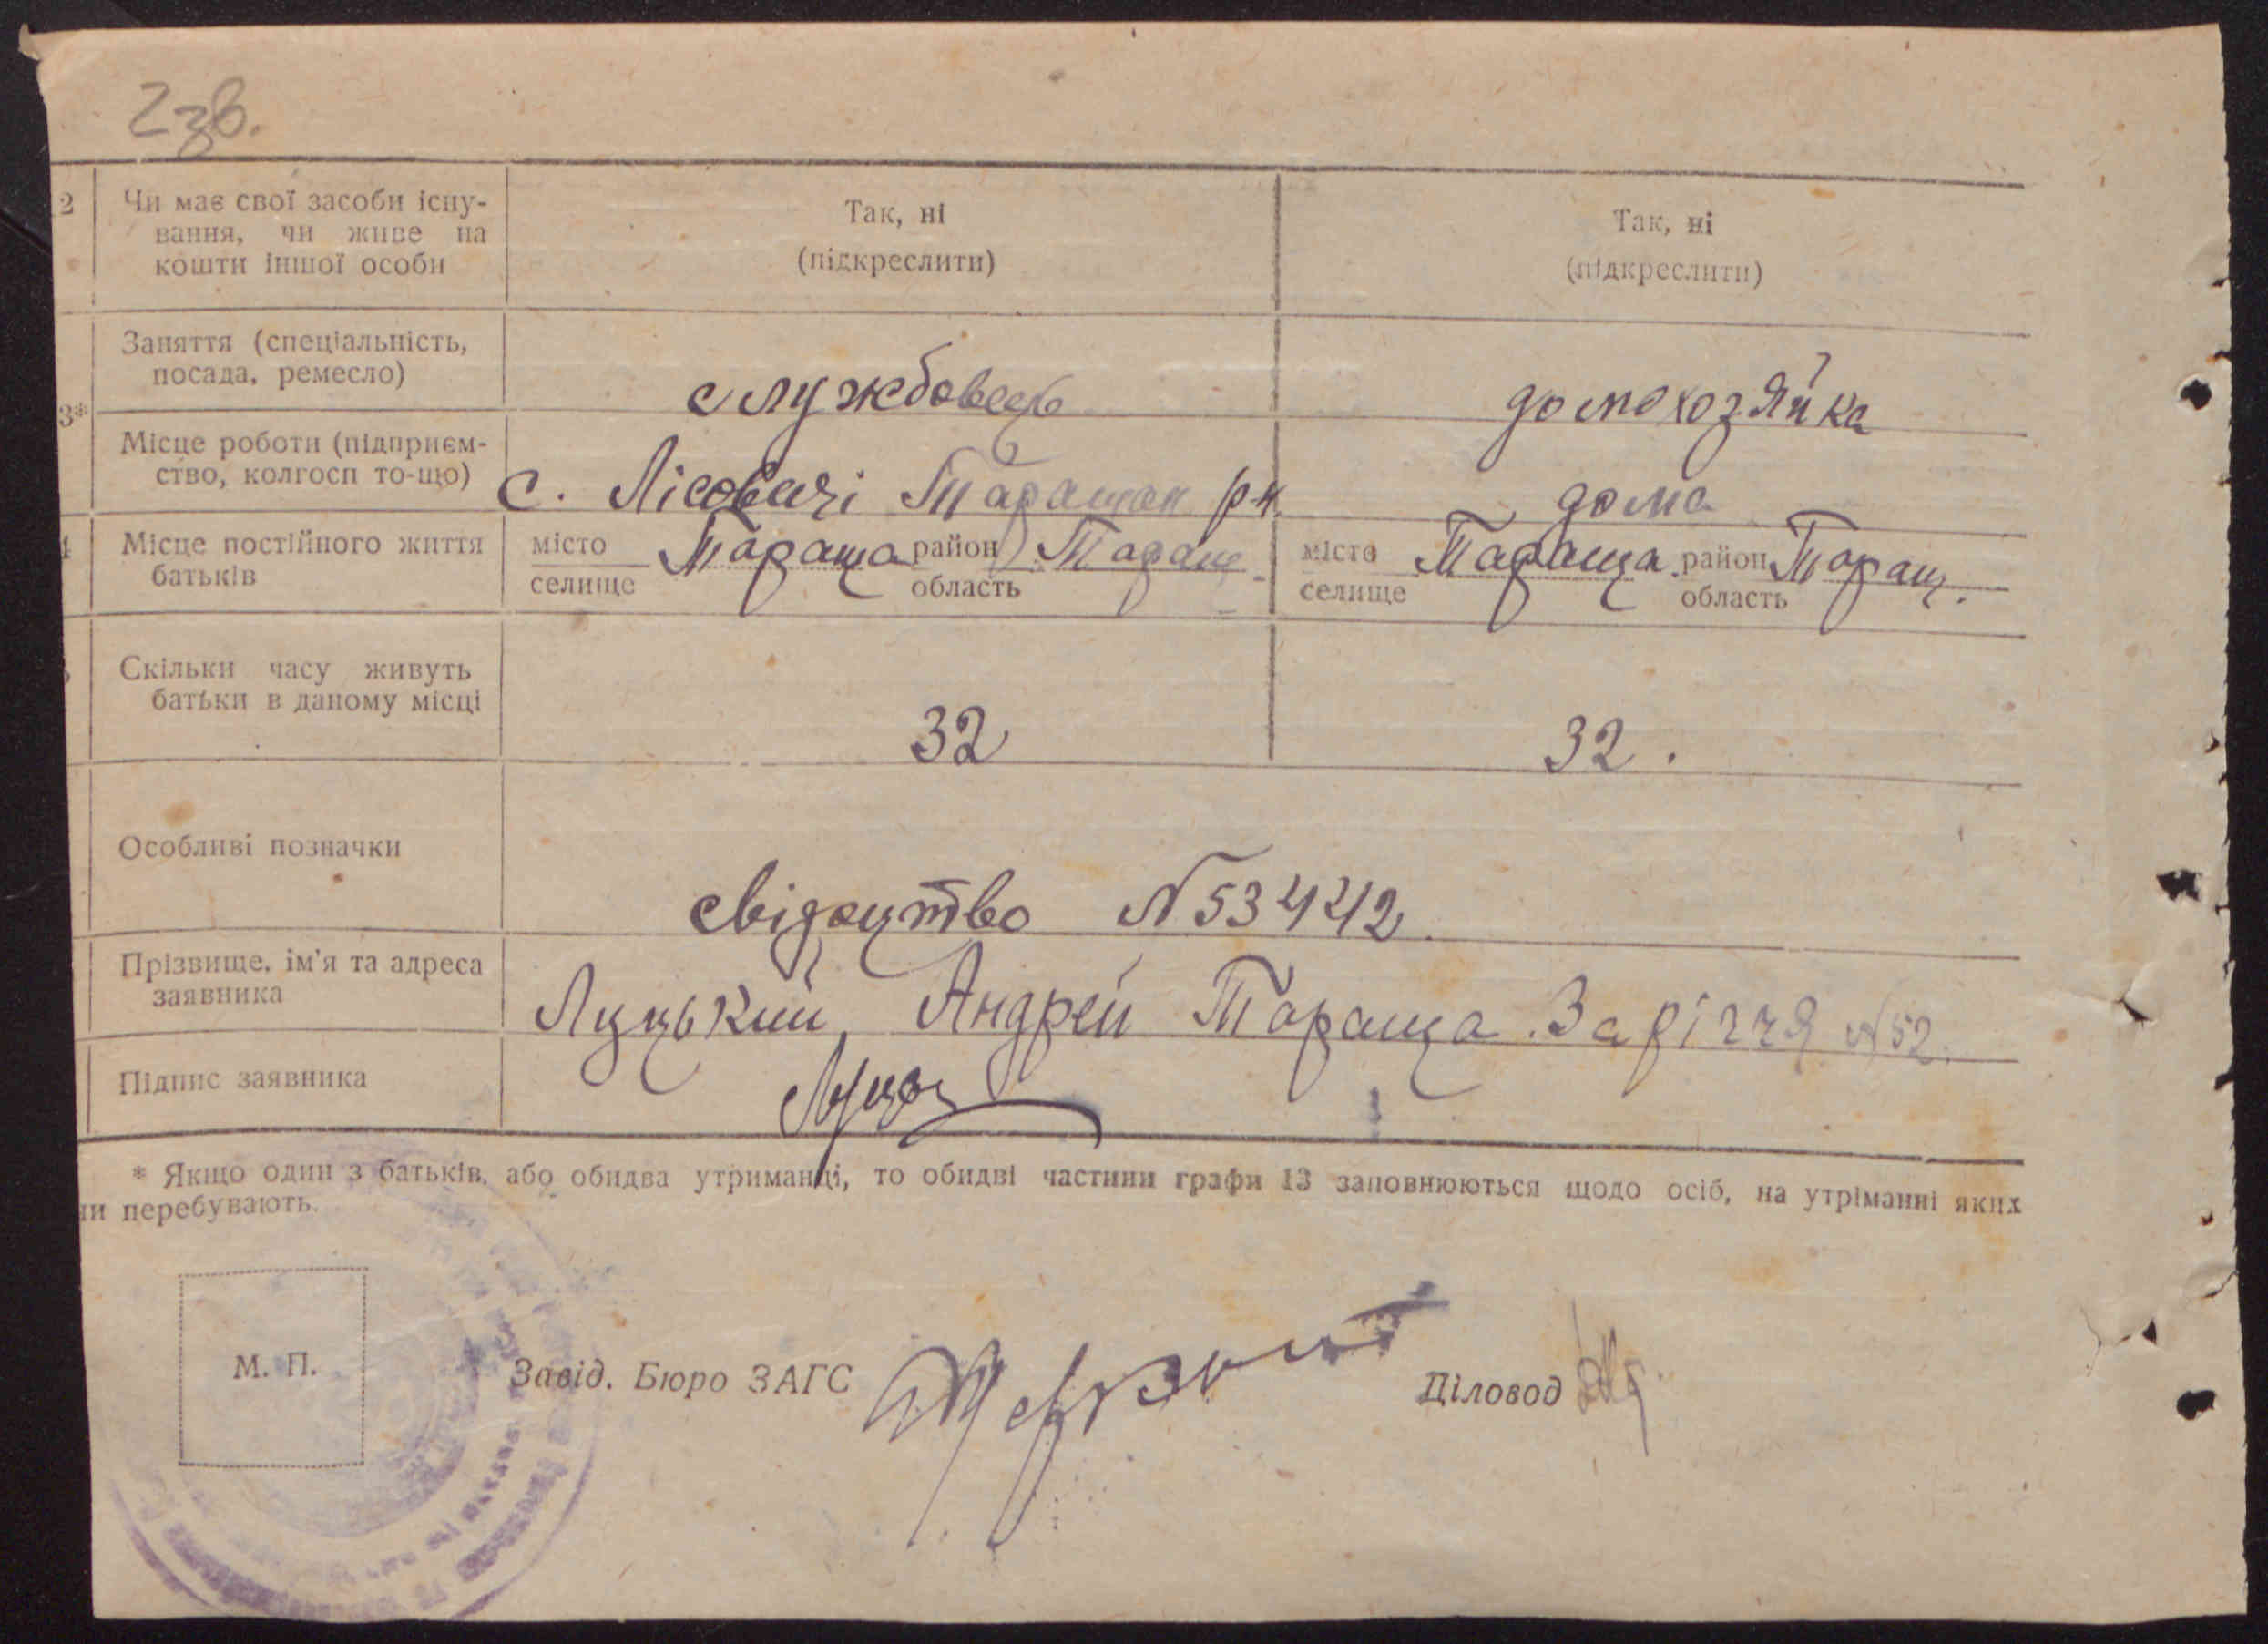 2зв.
2 Чи має свої засоби існу-
вання, чи живе на
кошти іншої особи
Так, ні
(підкреслити)
Так, ні
(підкреслити)
3*
Заняття (спеціальність,
посада, ремесло)
службовець
домохозяйка
Місце роботи (підприєм-
ство, колгосп то-що)
с. Лісовичі Таращан р-н.
дома
Місце постійного життя
батьків
місто Тараща район Таращ.
селище область
місто Тараща район Таращ.
селище область
Скільки часу живуть
батьки в даному місці
32
32.
Особливі позначки
свідоцтво N 53442.
Прізвище, ім'я та адреса
заявника
Луцький Андрей Тараща. Заріччя N 52.
Підпис заявника
* Якщо один з батьків, або обидва утриманці, то обидві частини графи 13 заповнюються щодо осіб, на утріманні яких
ни перебувають.
М. П.
Завід. Бюро ЗАГС
Діловод